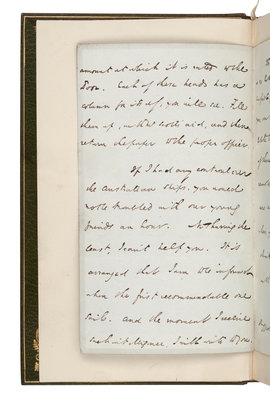 amount at which it is rated to the
Poor. Each of these heads has a
column for itself, you will see. Fill
them up, with that aid, and then
return the paper to the proper officer.
If I had any control over
the Australian ships, you would
not be troubled with our young
friends an hour. Not having the
least, I can't help you. It is
arranged that I am to be informed
when the first recommendable one
sails. and the moment I receive
such intelligence, I will write to you